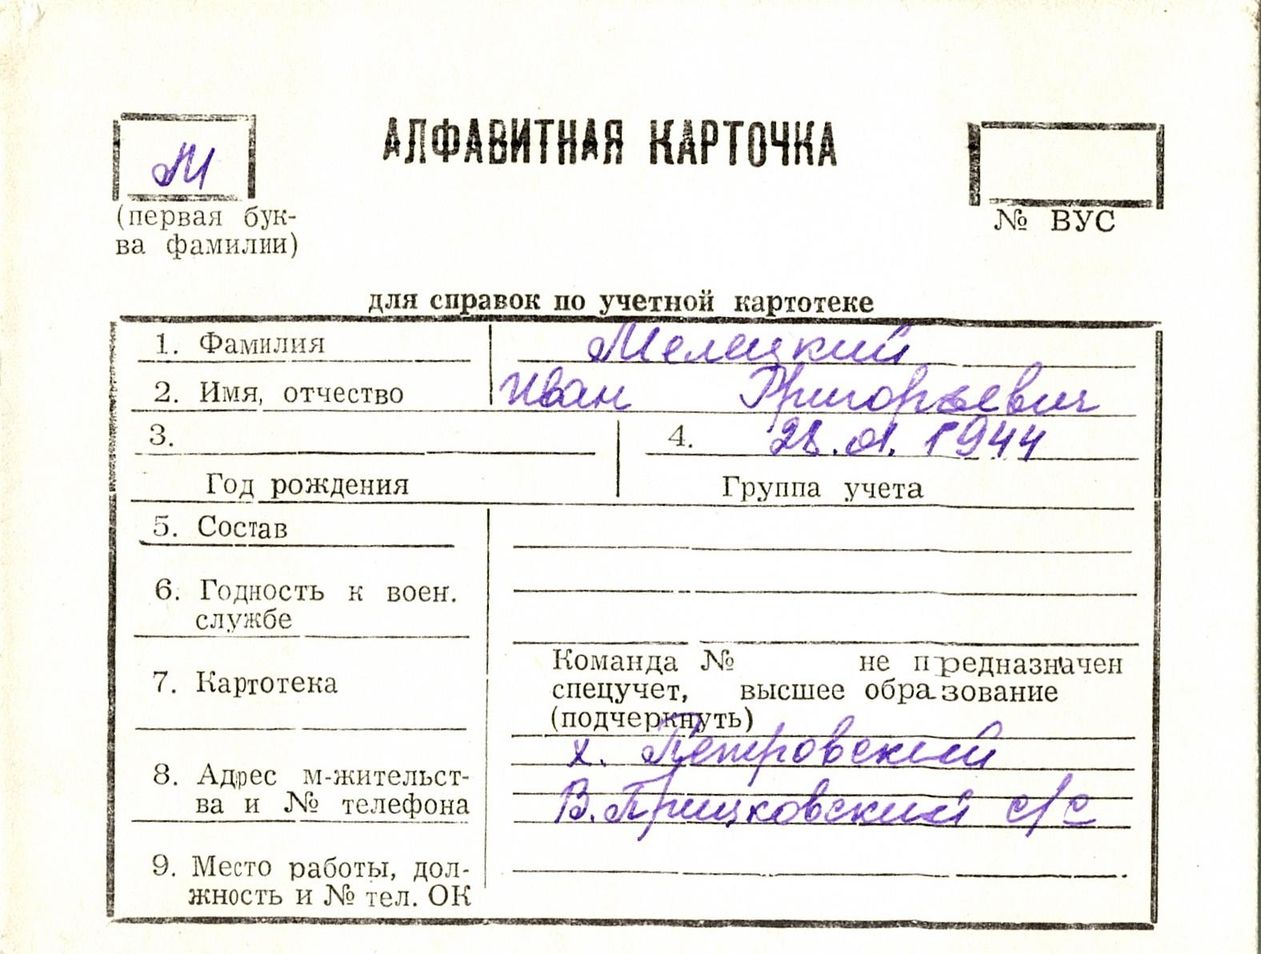 АЛФАВИТНАЯ КАРТОЧКА
М
(первая бук-
ва фамилии)
№ ВУС
для справок по учетной картотеке
1. Фамилия Мелецкий
2. Имя, отчество Иван Григорьевич
3. 4. 28.01.1944
Год рождения Группа учета
5. Состав
6. Годность к воен.
службе
7. Картотека
Команда № не предназначен
спецучет, высшее образование
(подчеркнуть)
8. Адрес м-жительст-
ва и № телефона
х. Петровский
В.Прицковский с/с
9. Место работы, дол-
жность и № тел. ОК